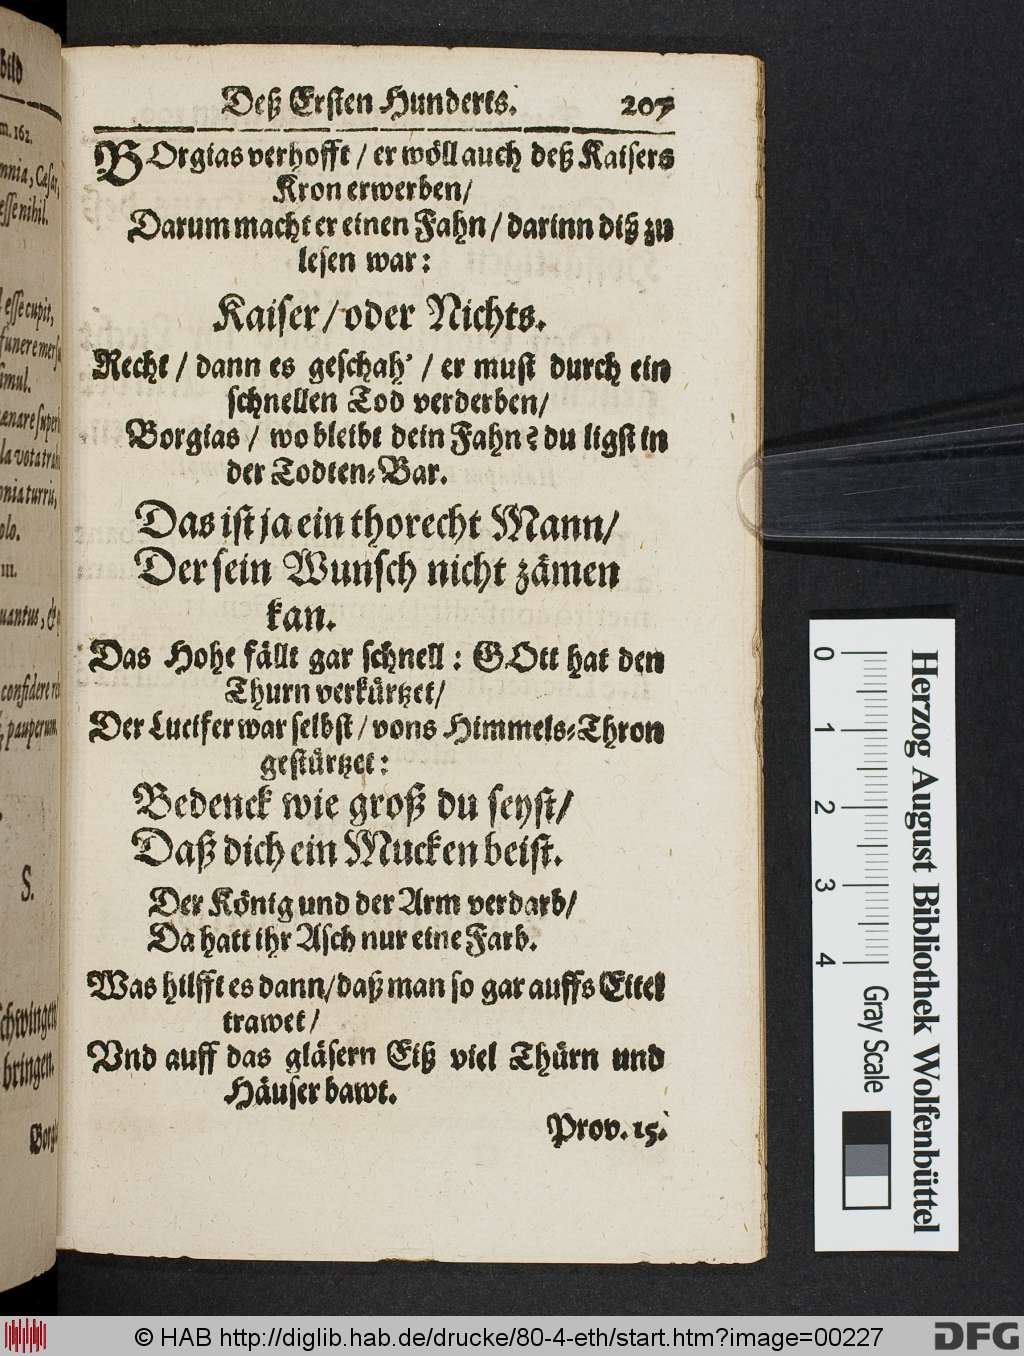 Deß Ersten Hunderts. 207
BOrgias verhofft / er wöll auch deß Kaisers
Kron erwerben /
Darum macht er einen Fahn / darinn diß zu
lesen war :
Kaiser / oder Nichts.
Recht / dann es geschah' / er must durch ein
schnellen Tod verderben /
Borgias / wo bleibt dein Fahn? du ligst in
der Todten-Bar.
Das ist ja ein thorecht Mann /
Der sein Wunsch nicht zämen
kan.
Das Hohe fällt gar schnell : GOtt hat den
Thurn verkürtzet /
Der Lucifer war selbst / vons Himmels-Thron
gestürtzet :
Bedenck wie groß du seyst /
Daß dich ein Mucken beist.
Der König und der Arm verdarb /
Da hatt ihr Asch nur eine Farb.
Was hilfft es dann / daß man so gar auffs Eitel
trawet /
Vnd auff das gläsern Eiß viel Thürn und
Häuser bawt.
Prov. 15.
bild
m. 162.
mnia, Cæsar,
esse nihil.
esse cupit,
funere mers
simul.
turris,
olo.
III.
confidere
pauperum
S.
schwingen
bringen.
Borg
0 1 2 3 4
Gray Scale
Herzog August Bibliothek Wolfenbüttel
© HAB http://diglib.hab.de/drucke/80-4-eth/start.htm?image=00227
DFG